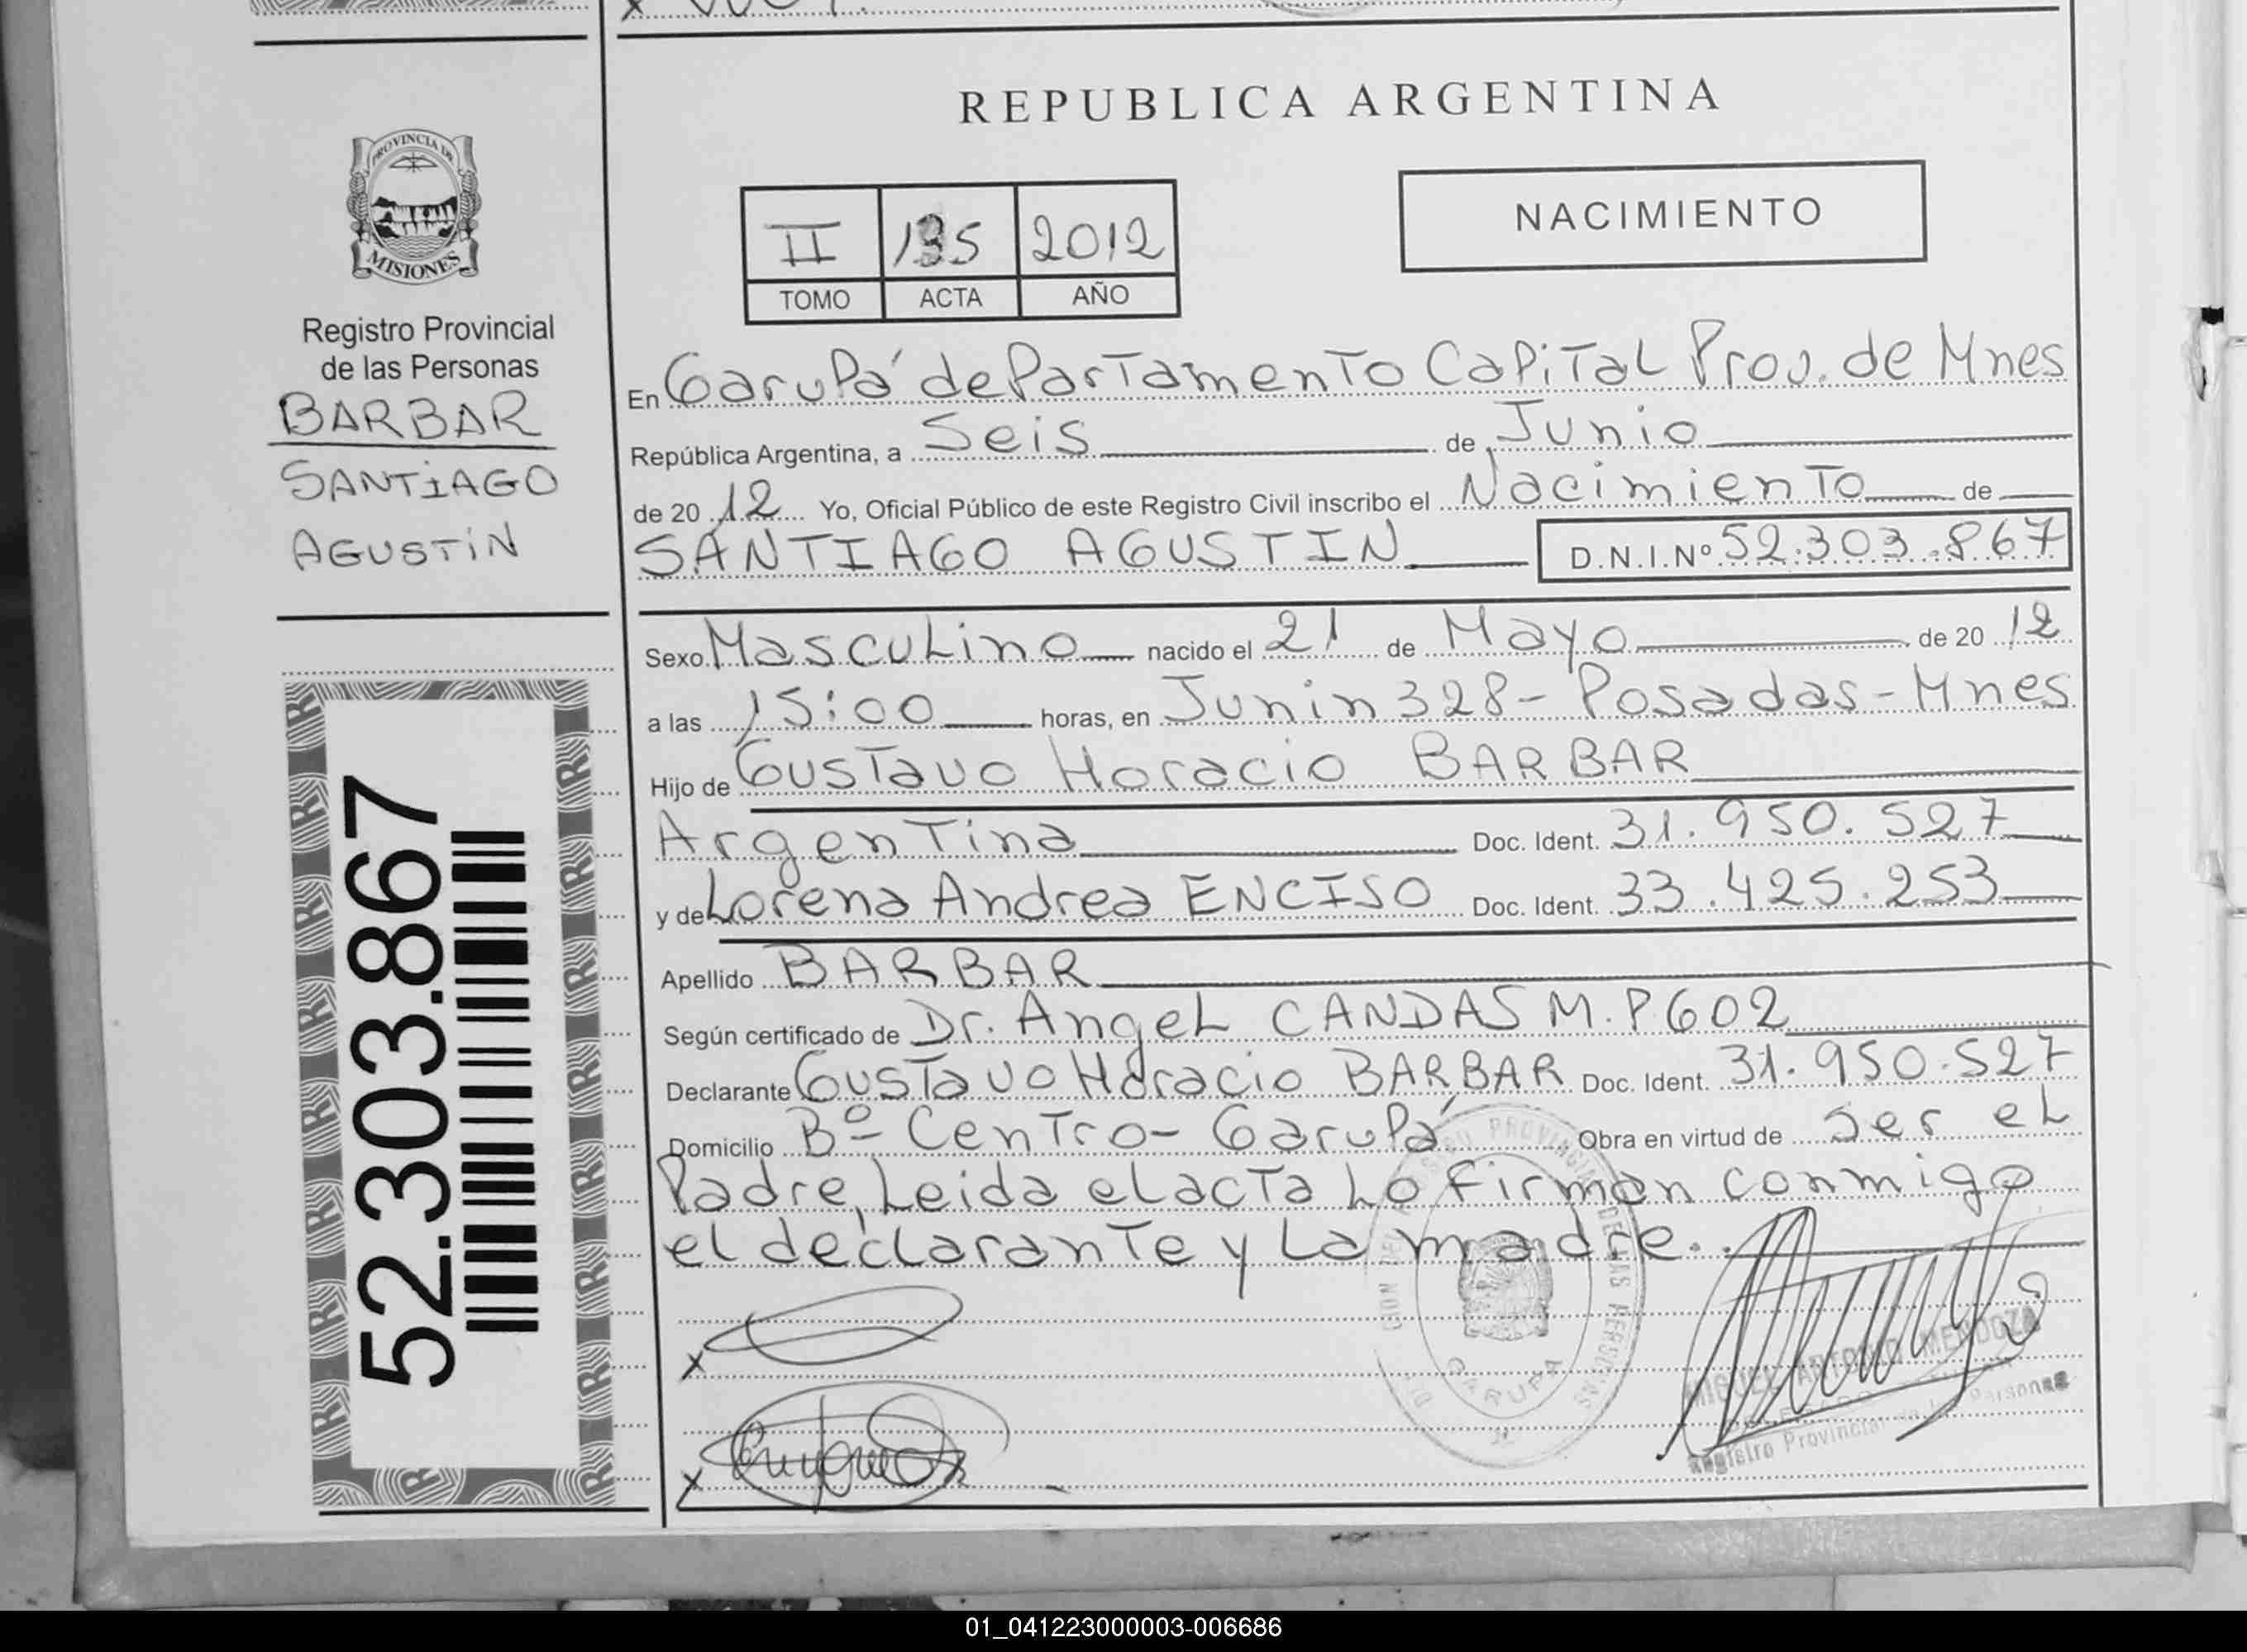 REPUBLICA ARGENTINA
PROVINCIA DE
MISIONES
Registro Provincial
de las Personas
BARBAR
SANTIAGO
AGUSTIN
52.303.867
NACIMIENTO
II 135 2012
TOMO ACTA AÑO
En Garupá departamento Capital Prov. de Mnes
República Argentina, a Seis de Junio
de 20 12 Yo, Oficial Público de este Registro Civil inscribo el Nacimiento de
SANTIAGO AGUSTIN D.N.I.Nº 52.303.867
Sexo Masculino nacido el 21 de Mayo de 20 12
a las 15:00 horas, en Junin 328 - Posadas - Mnes
Hijo de Gustavo Horacio BARBAR
Argentina Doc. Ident. 31.950.527
y de Lorena Andrea ENCISO Doc. Ident. 33.425.253
Apellido BARBAR
Según certificado de Dr. Angel CANDAS M.P 602
Declarante Gustavo Horacio BARBAR Doc. Ident. 31.950.527
Domicilio Bº- Centro- Garupá Obra en virtud de ser el
Padre, Leida el acta Lo firman conmigo
el declarante y La madre.
GARUPA
MIGUEL ANTONIO MENDOZA
Registro Provincial de las Personas
01_041223000003-006686